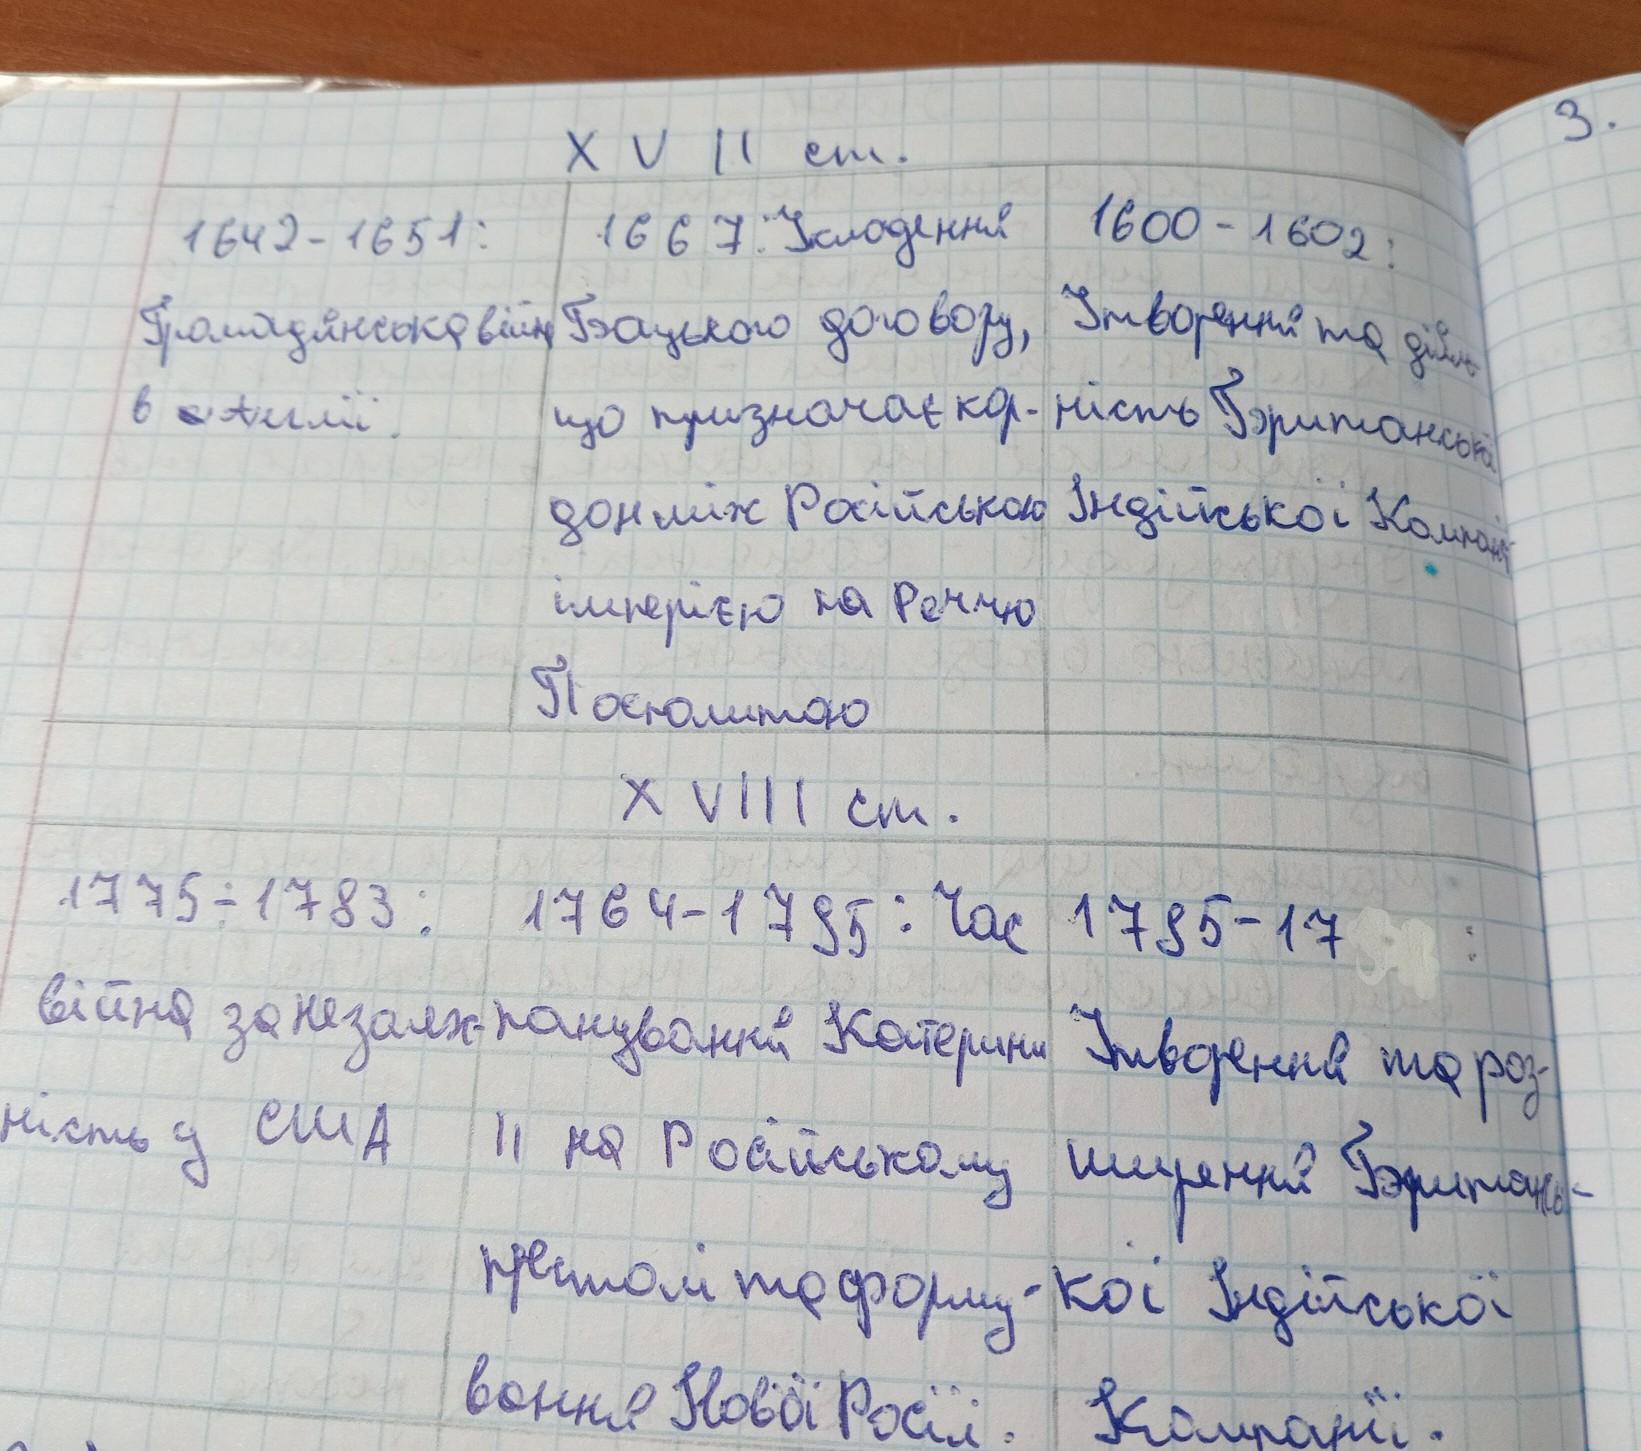 3.
XVII ст.
1642-1651:
Громадянська війна
в Англії.
1667: Укладення
Бацького договору,
що призначає кор-
дон між Російською
імперією на Реччю
Посполитою
1600-1602:
Утворення та діяль-
ність Британської
Індійської Компанії
XVIII ст.
1775-1783:
війна за незалеж-
ність у США
1764-1795: Час
панування Катерини
II на Російському
престолі та форму-
вання Нової Росії.
1795-17 :
Утворення та роз-
ширення Британсь-
кої Індійської
Компанії.